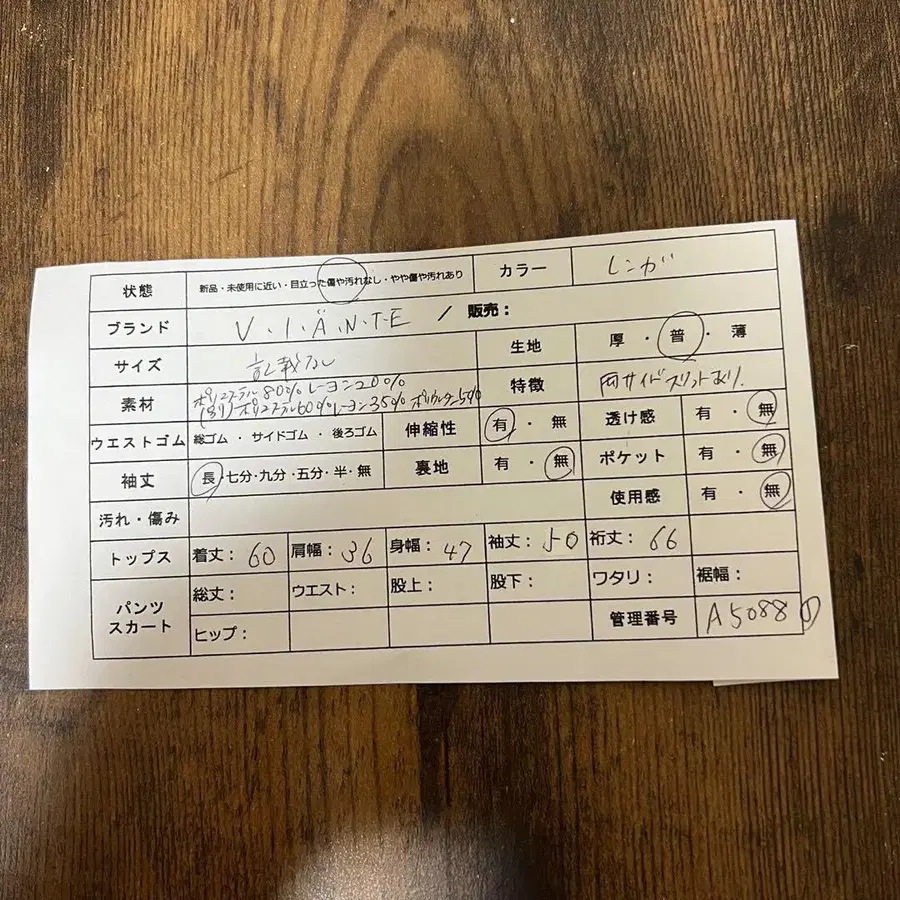 状態 新品・未使用に近い・目立った傷や汚れなし・やや傷や汚れあり カラー レンガ
ブランド V・I・Ä・N・T・E / 販売：
サイズ 記載なし 生地 厚・普・薄
素材 ポリエステル80%レーヨン20% 特徴 両サイドスリットあり.
(別り)ポリエステル60%レーヨン35%ポリウレタン5%
ウエストゴム 総ゴム・サイドゴム・後ろゴム 伸縮性 有・無 透け感 有・無
袖丈 長・七分・九分・五分・半・無 裏地 有・無 ポケット 有・無
汚れ・傷み 使用感 有・無
トップス 着丈：60 肩幅：36 身幅：47 袖丈：50 裄丈：66
パンツ スカート 総丈： ウエスト： 股上： 股下： ワタリ： 裾幅：
ヒップ： 管理番号 A5088①